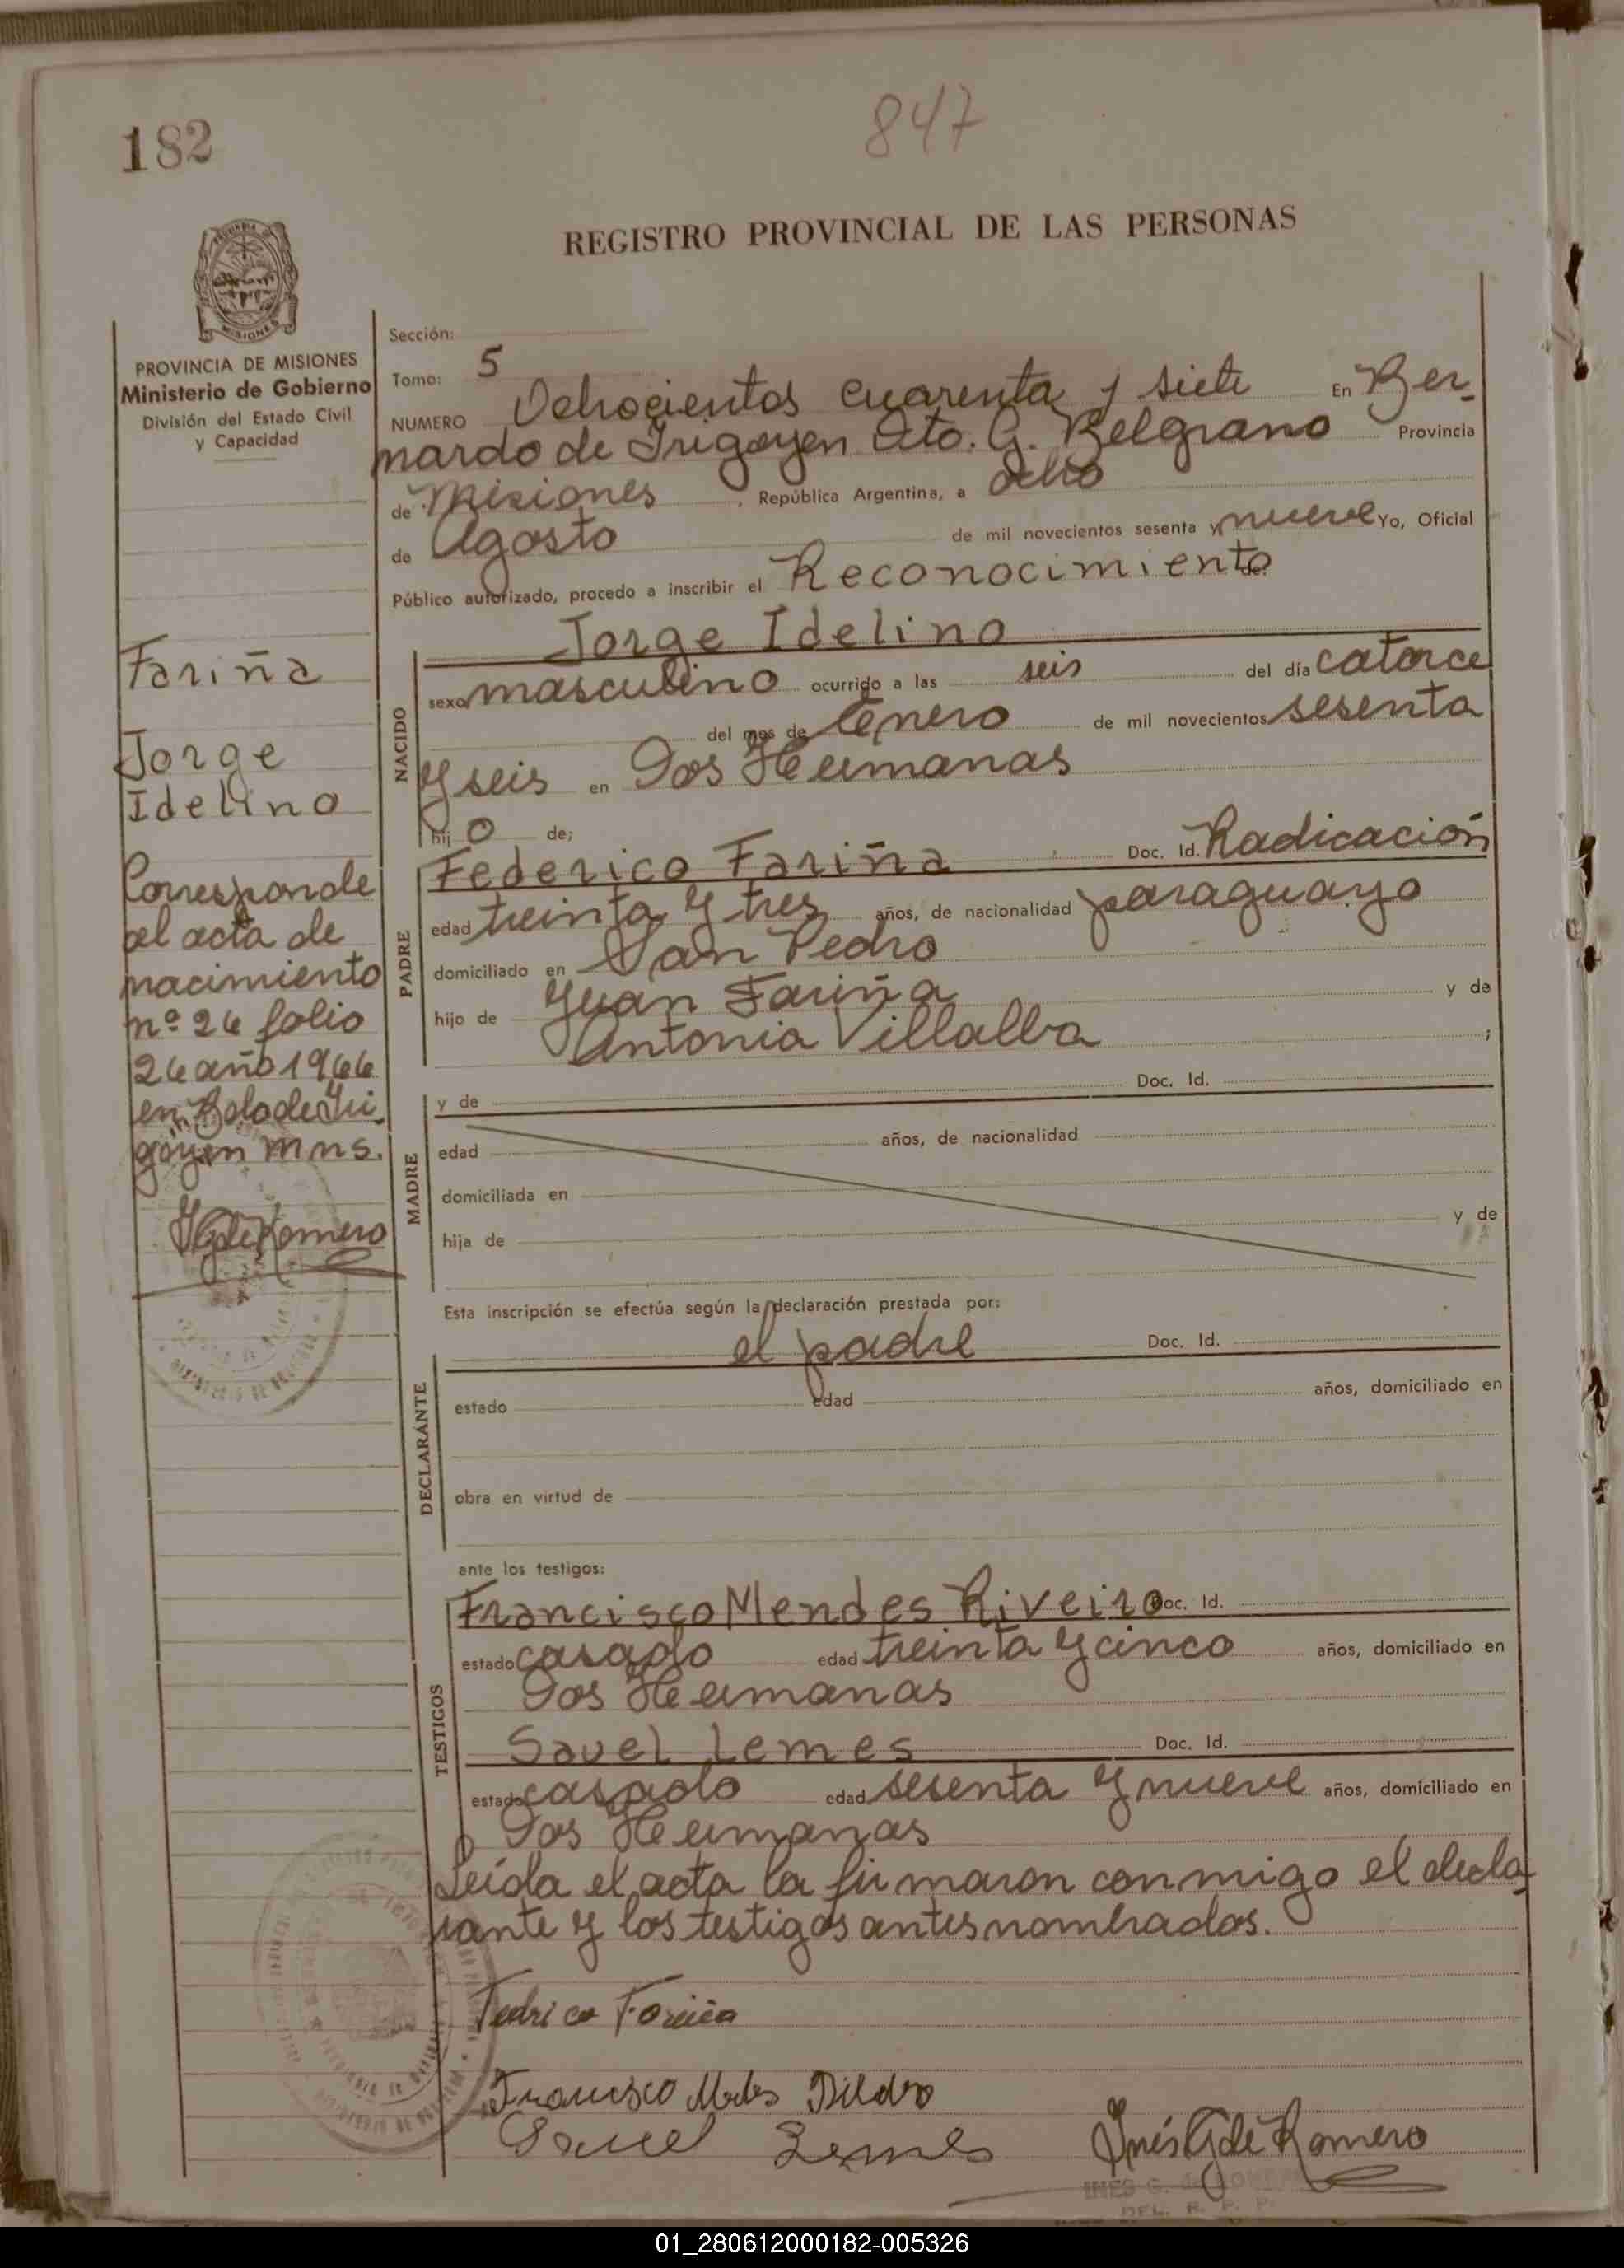 182
847
REGISTRO PROVINCIAL DE LAS PERSONAS
MISIONES
PROVINCIA DE MISIONES
Ministerio de Gobierno
División del Estado Civil
y Capacidad
Sección:
Tomo: 5
NUMERO Ochocientos cuarenta y siete En Ber-
nardo de Irigoyen Dto. G. Belgrano Provincia
de Misiones, República Argentina, a ocho
de Agosto de mil novecientos sesenta y nueve Yo, Oficial
Público autorizado, procedo a inscribir el Reconocimiento de:
Jorge Idelino
NACIDO
sexo masculino ocurrido a las seis del día catorce
del mes de Enero de mil novecientos sesenta
y seis en Dos Hermanas
hijo de;
PADRE
Federico Fariña Doc. Id. Radicación
edad treinta y tres años, de nacionalidad paraguayo
domiciliado en San Pedro
hijo de Juan Fariña y de
Antonia Villalba ;
MADRE
y de Doc. Id.
edad años, de nacionalidad
domiciliada en
hija de y de
Esta inscripción se efectúa según la declaración prestada por:
DECLARANTE
el padre Doc. Id.
estado edad años, domiciliado en
obra en virtud de
ante los testigos:
TESTIGOS
Francisco Mendes Riveiro Doc. Id.
estado casado edad treinta y cinco años, domiciliado en
Dos Hermanas
Sauel Lemes Doc. Id.
estado casado edad sesenta y nueve años, domiciliado en
Dos Hermanas
Leída el acta la firmaron conmigo el decla-
rante y los testigos antes nombrados.
Fariña
Jorge
Idelino
Corresponde
al acta de
nacimiento
nº 26 folio
26 año 1966
en Bdo de Iri-
goyen Mns.
IGde Romero
Fedrico Fariña
Francisco
Sauel Lemes
Inés G de Romero
INES G. de ROMERO
DEL. R. P. P.
01_280612000182-005326